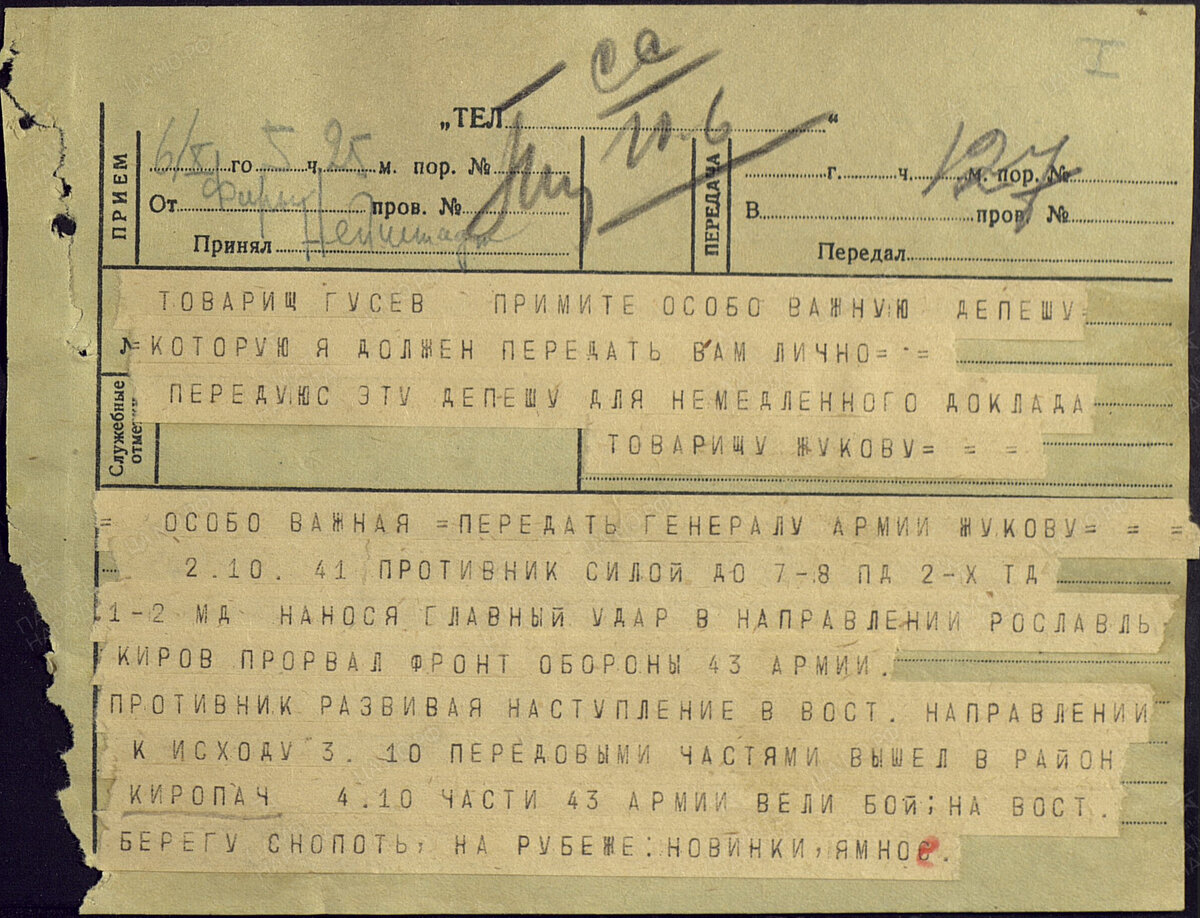 I
са
11.6
„ТЕЛ“
ПРИЕМ
6/X го 5 ч. 25 м. пор. №
От пров. №
Принял
ПЕРЕДАЧА
г. ч. м. пор. №
127
В пров. №
Передал
ТОВАРИЩ ГУСЕВ ПРИМИТЕ ОСОБО ВАЖНУЮ ДЕПЕШУ=
=КОТОРУЮ Я ДОЛЖЕН ПЕРЕДАТЬ ВАМ ЛИЧНО= =
ПЕРЕДУЮС ЭТУ ДЕПЕШУ ДЛЯ НЕМЕДЛЕННОГО ДОКЛАДА
ТОВАРИЩУ ЖУКОВУ= = =
Служебные
= ОСОБО ВАЖНАЯ =ПЕРЕДАТЬ ГЕНЕРАЛУ АРМИИ ЖУКОВУ= = =
2.10. 41 ПРОТИВНИК СИЛОЙ ДО 7-8 ПД 2-Х ТД
1-2 МД НАНОСЯ ГЛАВНЫЙ УДАР В НАПРАВЛЕНИИ РОСЛАВЛЬ
КИРОВ ПРОРВАЛ ФРОНТ ОБОРОНЫ 43 АРМИИ.
ПРОТИВНИК РАЗВИВАЯ НАСТУПЛЕНИЕ В ВОСТ. НАПРАВЛЕНИИ
К ИСХОДУ 3. 10 ПЕРЕДОВЫМИ ЧАСТЯМИ ВЫШЕЛ В РАЙОН
КИРОПАЧ 4.10 ЧАСТИ 43 АРМИИ ВЕЛИ БОЙ;НА ВОСТ.
БЕРЕГУ СНОПОТЬ, НА РУБЕЖЕ:НОВИНКИ,ЯМНОЕ.